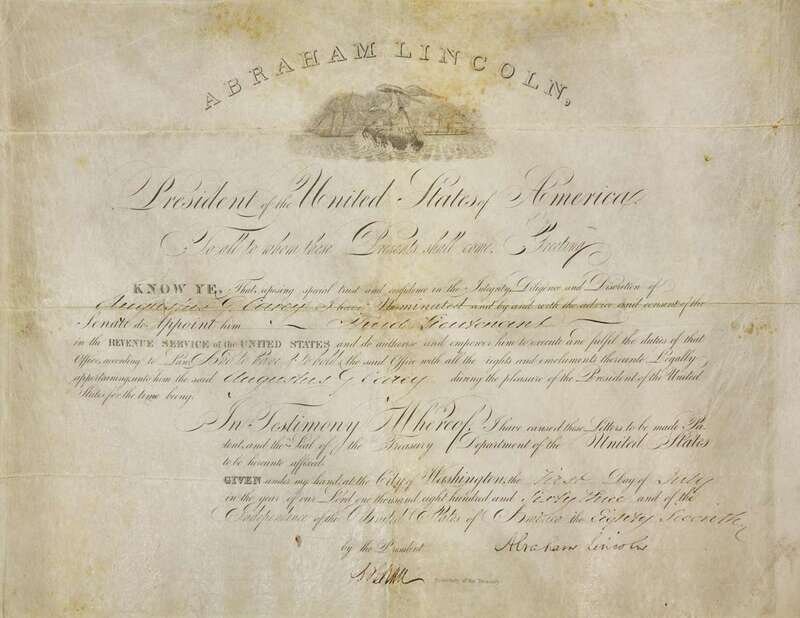 ABRAHAM LINCOLN,
President of the United States of America
To all to whom these Presents shall come. Greeting
KNOW YE, That reposing special trust and confidence in the Integrity, Diligence and Discretion of
Augustus G. Cary I have Nominated and by and with the advice and consent of the
Senate do Appoint him Lieutenant
in the REVENUE SERVICE of the UNITED STATES and do authorise and empower him to execute and fulfil the duties of that
Office, according to Law And to Have & to hold, the said Office with all the rights and emoluments thereunto Legally
appertaining, unto him the said Augustus G. Cary during the pleasure of the President of the United
States for the time being.
In Testimony Whereof, I have caused these Letters to be made Pa-
tent, and the Seal of the Treasury Department of the United States
to be hereunto affixed.
GIVEN under my hand, at the City of Washington, the First Day of July
in the year of our Lord one thousand eight hundred and Sixty and of the
Independence of the United States of America the Eighty Seventh
by the President
Abraham Lincoln
Secretary of the Treasury